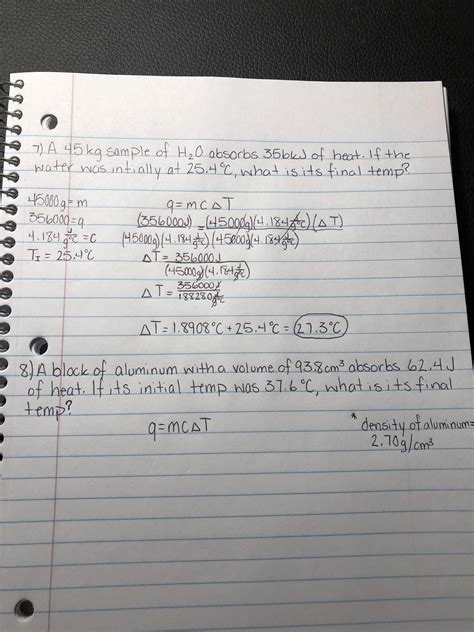 7) A 45kg sample of H₂O absorbs 356kJ of heat. If the
water was intially at 25.4°C, what is its final temp?
45000g = m
q = mc△T
356000 = q
(356000J) = (45000g)(4.184 J/g°C)(△T)
4.184 J/g°C = C
(45000g)(4.184 J/g°C) (45000g)(4.184 J/g°C)
T_I = 25.4°C
△T = 356000J
(45000g)(4.184 J/g°C)
△T = 356000J
188280 J/°C
△T = 1.8908°C + 25.4°C = 27.3°C
8) A block of aluminum with a volume of 93.8cm³ absorbs 62.4J
of heat. If its initial temp was 37.6°C, what is its final
temp?
q = mc△T
* density of aluminum =
2.70g/cm³